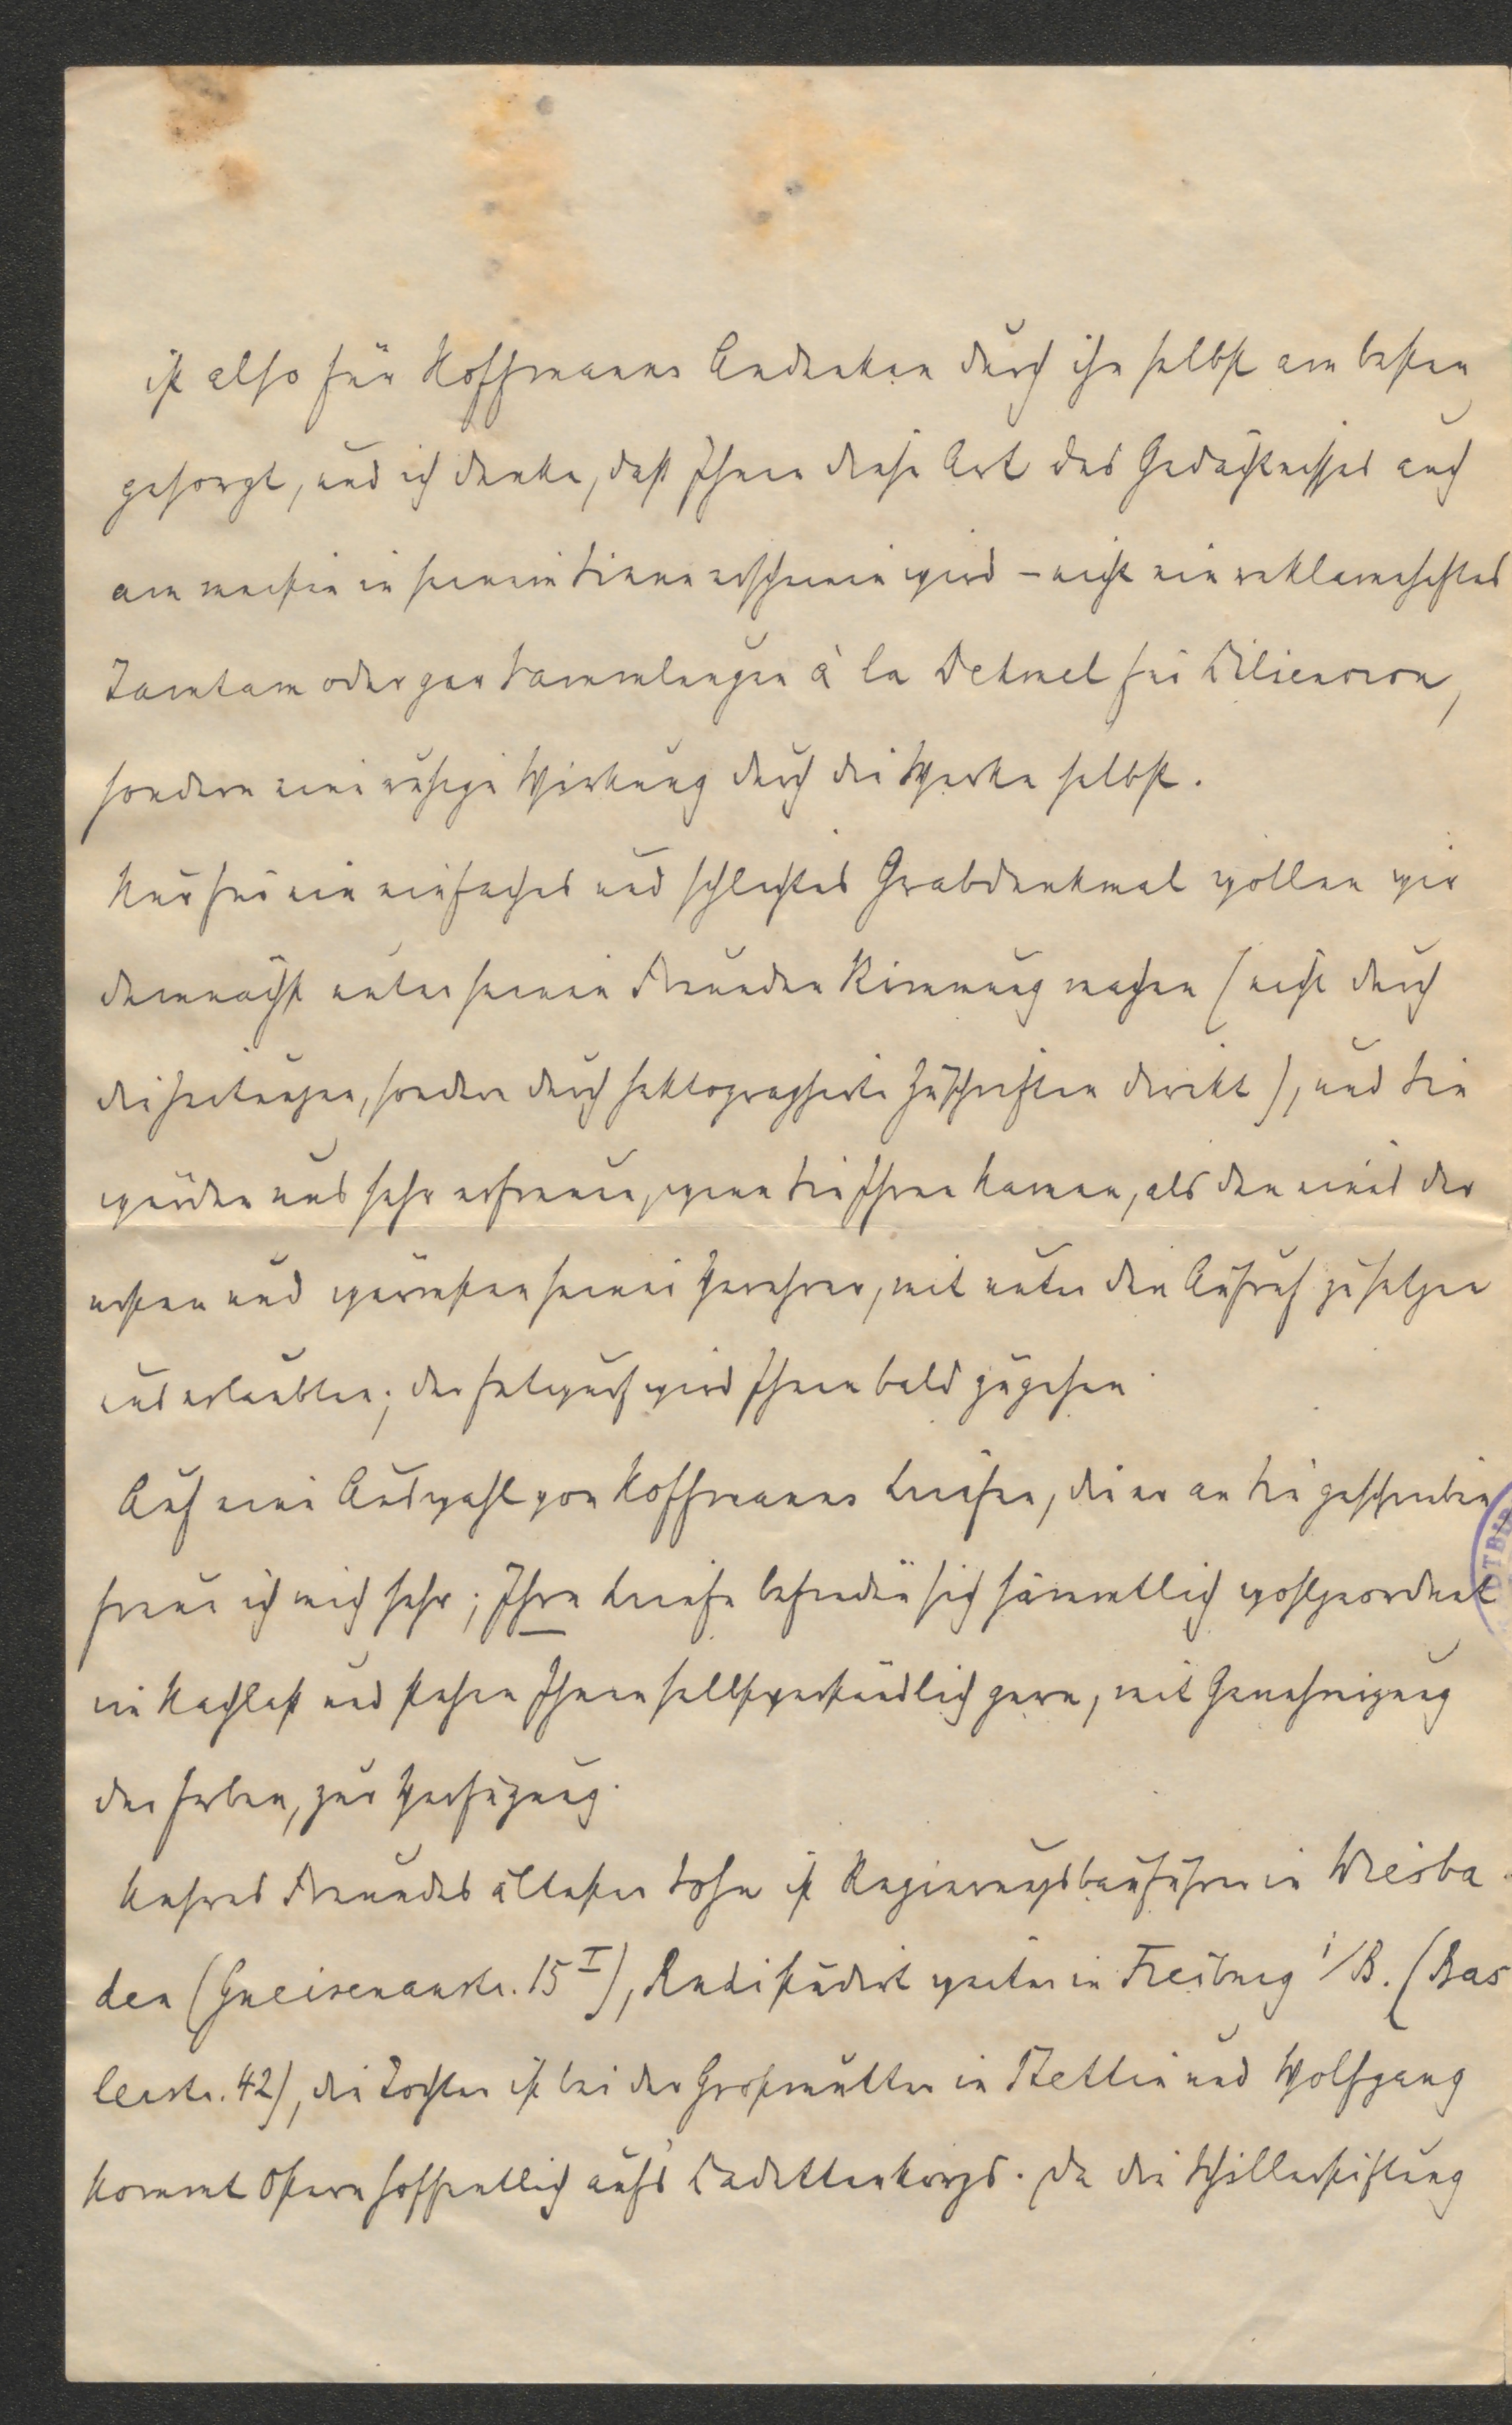 ist also für Hoffmanns Andenken durch ihn selbst am besten
gesorgt, und ich denke, daß Ihnen diese Art des Gedächtnisses auch
am meisten in seinem Sinne erscheinen wird – nicht ein reklamehaftes
Tamtam oder gar Sammlungen à la Dehmel für Liliencron,
sondern eine ruhige Wirkung durch die Werke selbst.
Nur für ein einfaches und schlichtes Grabdenkmal wollen wir
demnächst unter seinen Freunden Stimmung machen (nicht durch
die Zeitungen, sondern durch hektographierte Zuschriften direkt), und Sie
würden uns sehr erfreuen, wenn Sie Ihren Namen, als den eines der
ersten und wärmsten seiner Verehrer, mit unter den Aufruf zu setzen
uns erlaubten; der Entwurf wird Ihnen bald zugehen.
Auf eine Auswahl von Hoffmanns Briefen, die er an Sie geschrieben
freue ich mich sehr; Ihre Briefe befinden sich sämmtlich wohlgeordnet
im Nachlaß und stehen Ihnen selbstverständlich gern, mit Genehmigung
der Erben, zur Verfügung.
Unsres Freundes ältester Sohn ist Regierungsbauführer in Wiesba-
den (Gneisenaustr. 15 I), Rudi studirt weiter in Freiburg i/B. (Bas
lerstr. 42), die Tochter ist bei der Großmutter in Stettin und Wolfgang
kommt Ostern hoffentlich auf's Kadettenkorps. Da die Schillerstiftung